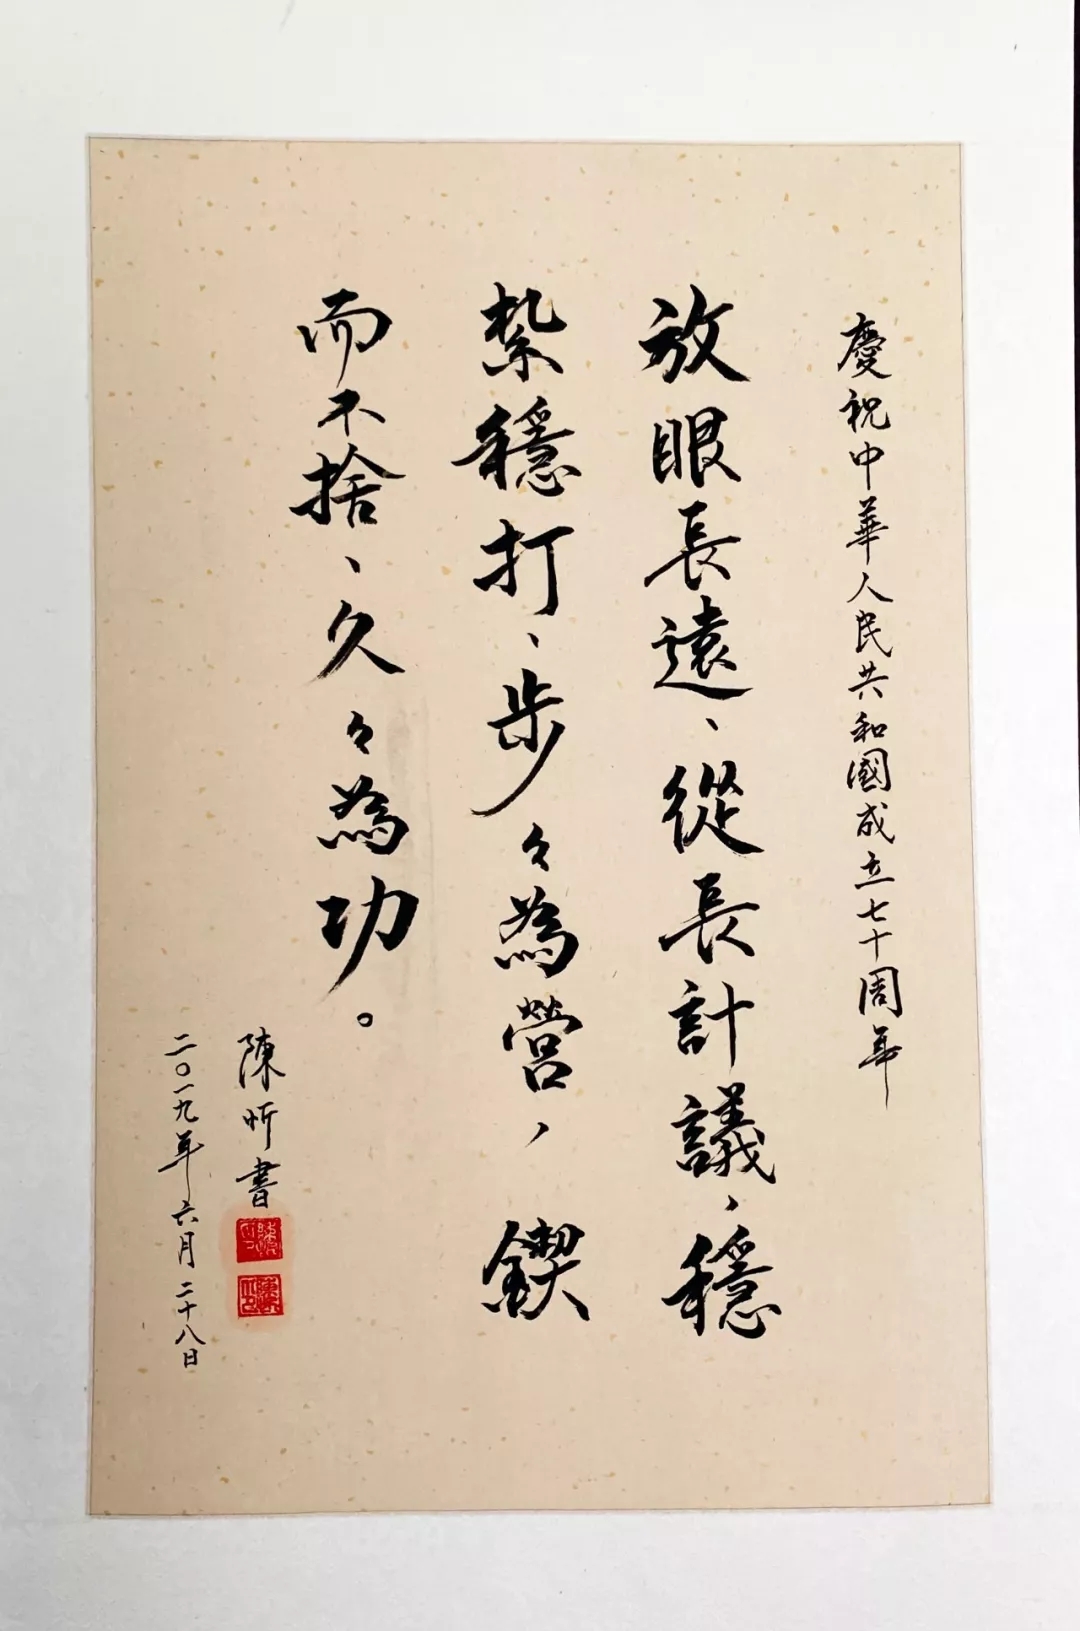 慶祝中華人民共和國成立七十周年
放眼長遠、從長計議、穩
紮穩打、步々為營、鍥
而不捨、久々為功。
陳昕書
二〇一九年六月二十八日